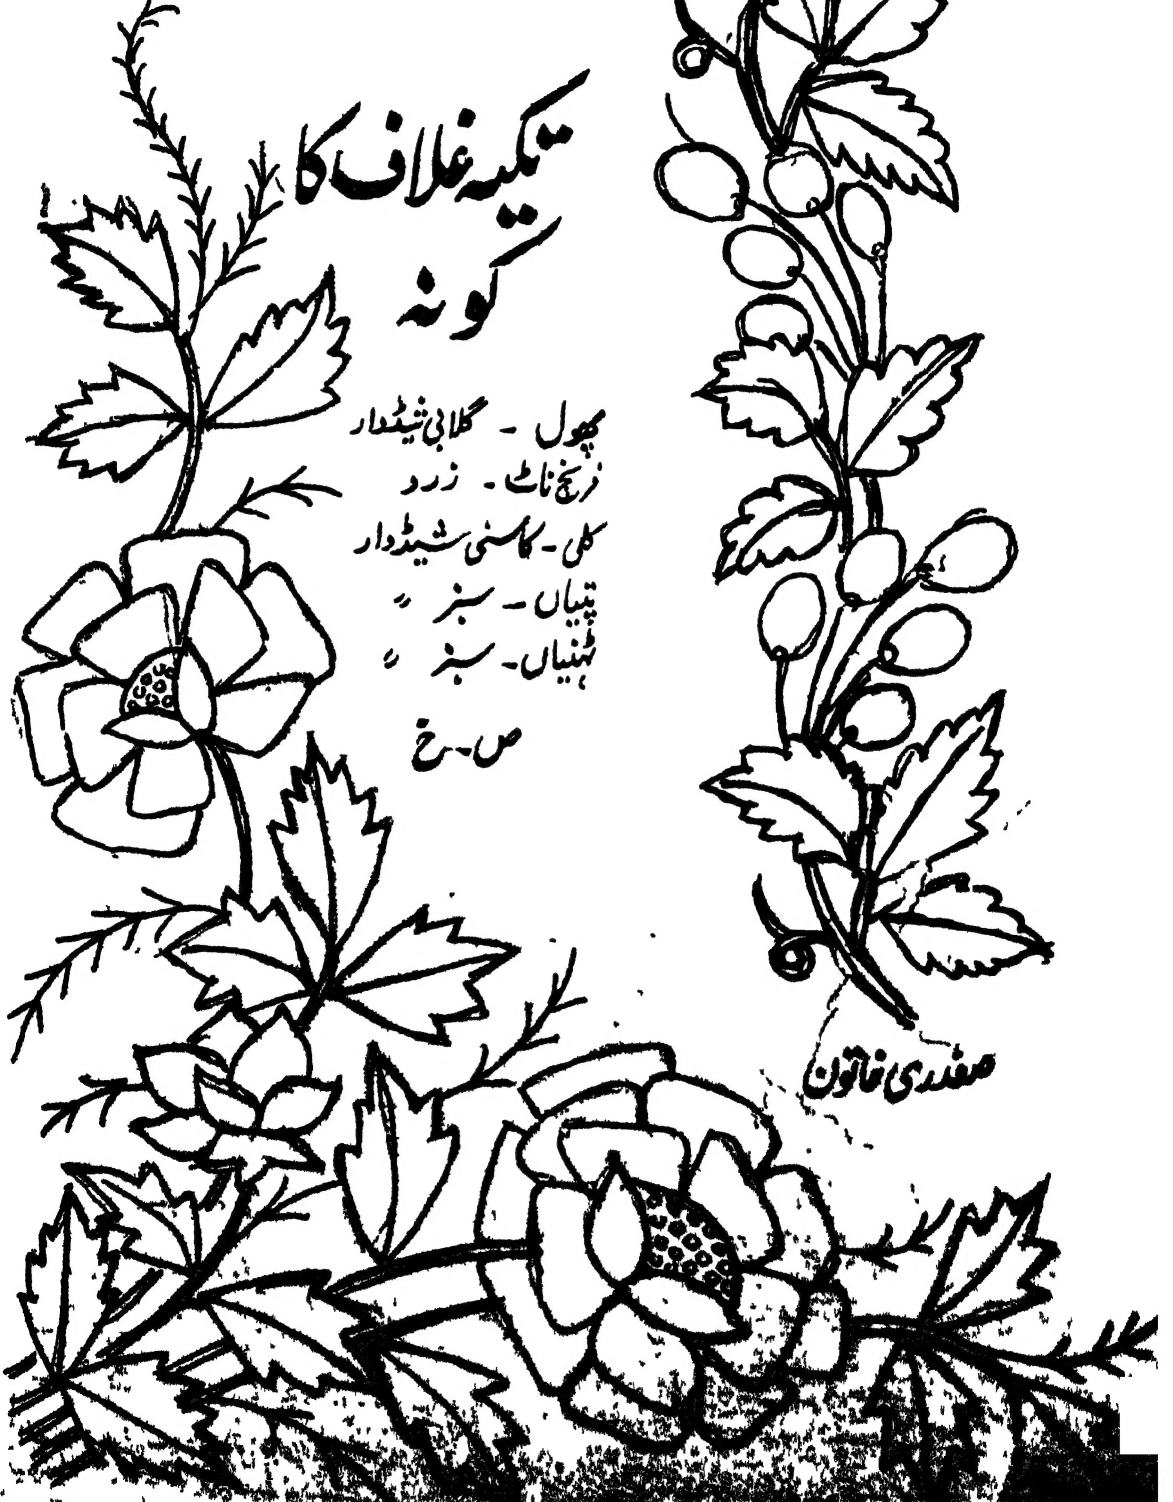 تکیہ غلاف کا
کونہ
پھول ۔ گلابی شیڈدار
فرنچ ناٹ ۔ زرد
کلی ۔ کاسنی شیڈدار
پتیاں ۔ سبز 〃
ٹہنیاں ۔ سبز 〃
ص ۔ خ
صفدری خاتون